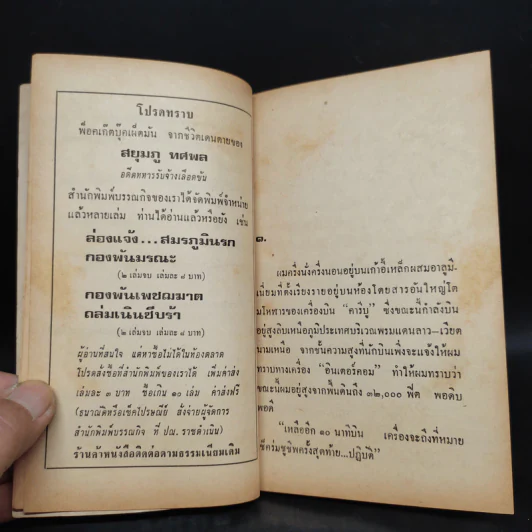 โปรดทราบ
พ็อคเก็ตบุ๊คเผ็ดมัน จากชีวิตเดนตายของ
สยุมภู ทศพล
อดีตทหารรับจ้างเลือดข้น
สำนักพิมพ์บรรณกิจของเราได้จัดพิมพ์จำหน่าย
แล้วหลายเล่ม ท่านได้อ่านแล้วหรือยัง เช่น
ล่องแจ้ง...สมรภูมินรก
กองพันมรณะ
(๒ เล่มจบ เล่มละ ๘ บาท)
กองพันเพชฌฆาต
ถล่มเนินซีบร้า
(๒ เล่มจบ เล่มละ ๘ บาท)
ผู้อ่านที่สนใจ แต่หาซื้อไม่ได้ในท้องตลาด
โปรดสั่งซื้อที่สำนักพิมพ์ของเราได้ เพิ่มค่าส่ง
เล่มละ ๓ บาท ซื้อเกิน ๑๐ เล่ม ค่าส่งฟรี
(ธนาณัติหรือเช็คไปรษณีย์ สั่งจ่ายผู้จัดการ
สำนักพิมพ์บรรณกิจ ที่ ปณ. ราชดำเนิน)
ร้านค้าหนังสือติดต่อตามธรรมเนียมเดิม
๑.
ผมครึ่งนั่งครึ่งนอนอยู่บนเก้าอี้เหล็กผสมอาลูมิ-
เนียมที่ตั้งเรียงรายอยู่บนห้องโดยสารอันใหญ่โต
มโหฬารของเครื่องบิน “คาริบู” ซึ่งขณะนี้กำลังบิน
อยู่สูงลิบเหนือภูมิประเทศบริเวณพรมแดนลาว-เวียต
นามเหนือ จากชั้นความสูงที่นักบินเพิ่งจะแจ้งให้ผม
ทราบทางเครื่อง “อินเตอร์คอม” ทำให้ผมทราบว่า
ขณะนี้ผมอยู่สูงจากพื้นดินถึง ๓๒,๐๐๐ ฟีต พอดิบ
พอดี
“เหลืออีก ๑๐ นาทีบิน เครื่องจะถึงที่หมาย
เช็คร่มชูชีพครั้งสุดท้าย...ปฏิบัติ”